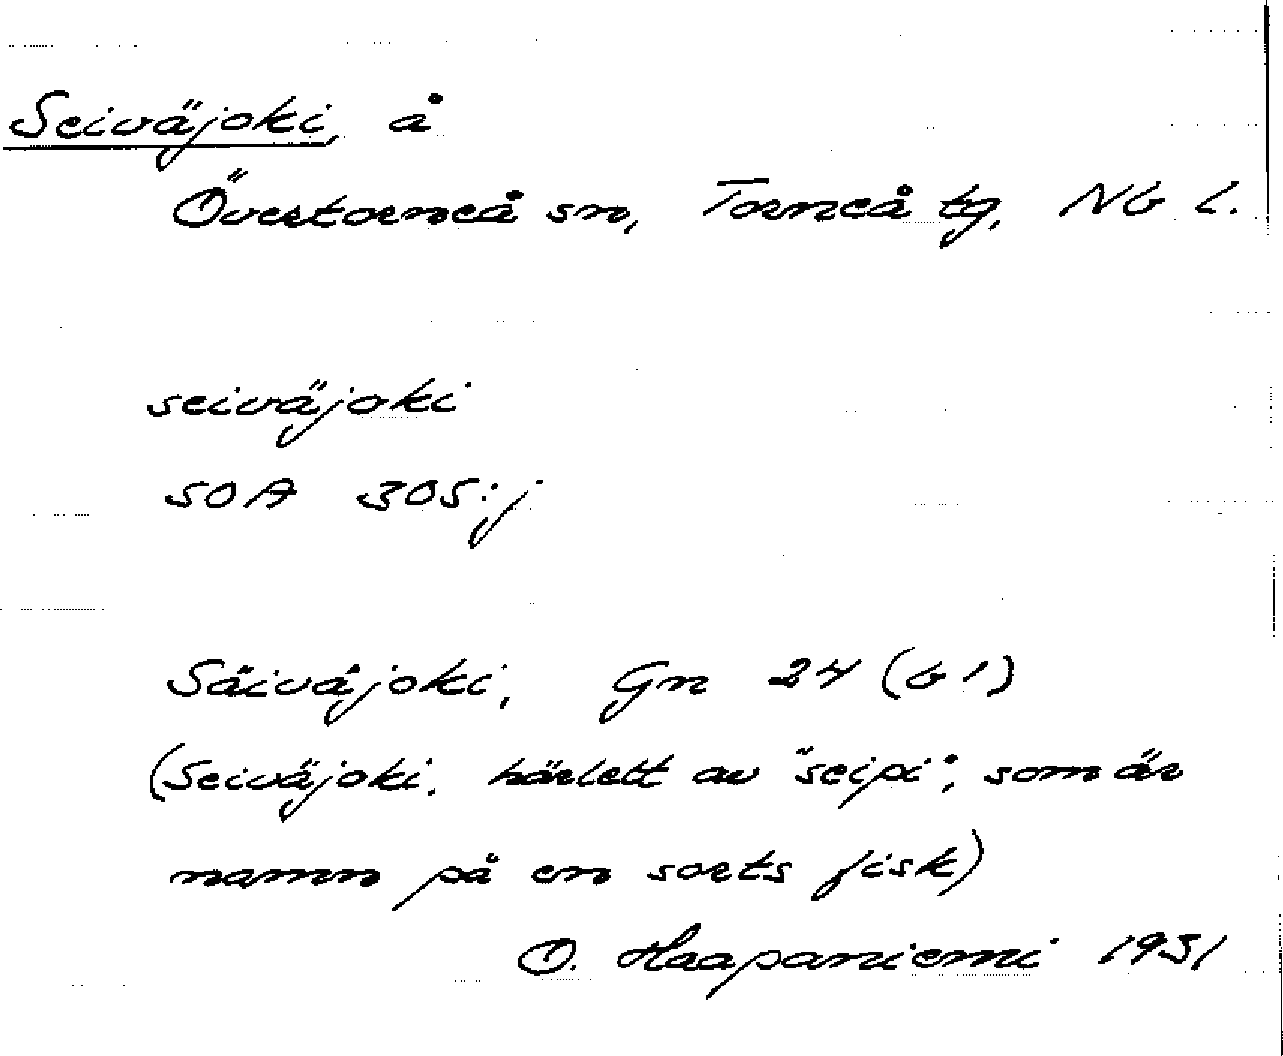 Seiväjoki, å
Övertorneå sn, Torneå tg, Nb l.
seiväjoki
SOA 305:j
Säiväjoki, Gn 24 (b1)
(Seiväjoki, härlett av "seipi", som är
namn på en sorts fisk)
O. Haapaniemi 1931